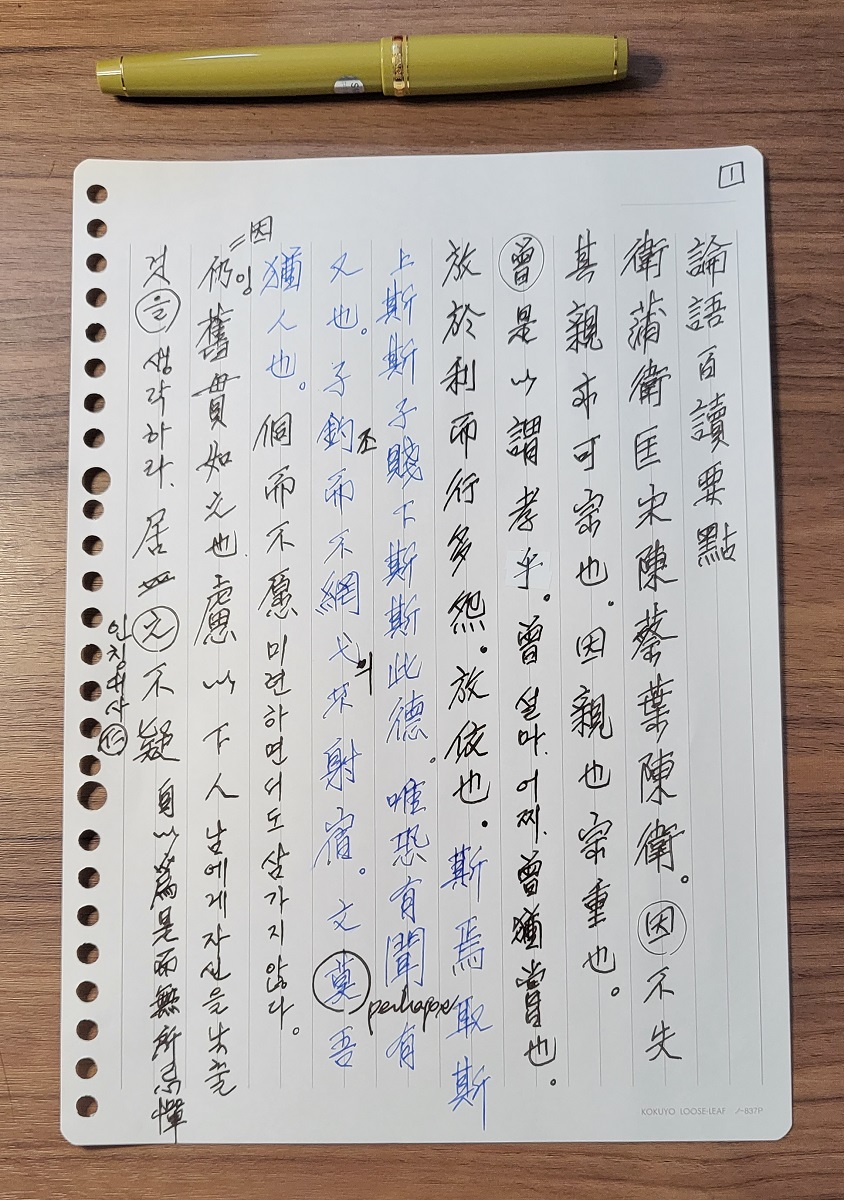 1
論語百讀要點
衛蒲衛匡宋陳蔡葉陳衛。因不失
其親亦可宗也。因親也宗重也。
曾是以謂孝乎。曾 설마. 어찌. 曾猶嘗也。
放於利而行多怨。放依也。斯焉取斯
上斯斯子賤下斯斯此德。唯恐有聞有
又也。子釣조而不網弋익不射宿。文莫吾
perhaps
猶人也。侗而不愿 미련하면서도 삼가지 않다。
仍잉舊貫如之也. 慮以下人 남에게 자신을 낮출
=因
것을 생각하라. 居之不疑 自以爲是而無所忌憚
인칭대사
KOKUYO LOOSE-LEAF ノ-837P